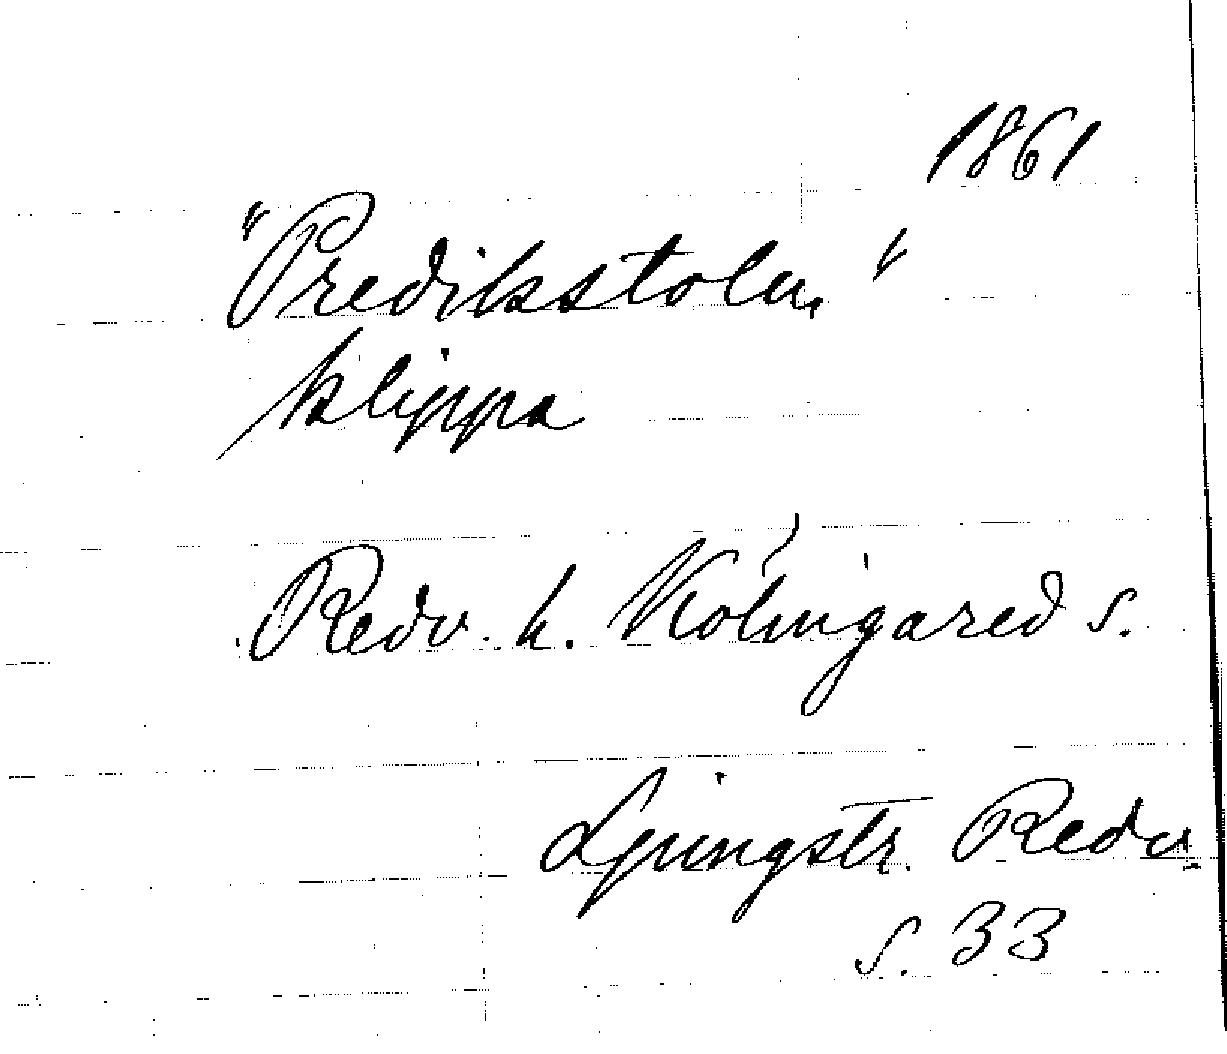 1861
"Predikstolen"
klippa
Redv. h. Kölingared s.
Ljungstr. Redv.
s. 33